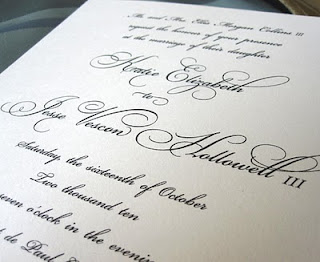 Mr. and Mrs. Morgan Collins III
request the honour of your presence
the marriage of their daughter
Katie Elizabeth
to
Jesse Vescon Hollowell III
Saturday, the sixteenth of October
Two thousand ten
seven o'clock in the evening
de Paul